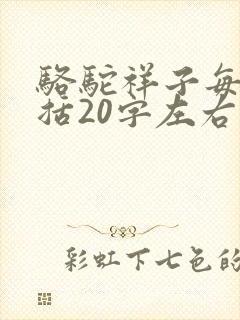 骆驼祥子每
括20字左右
彩虹下七色的